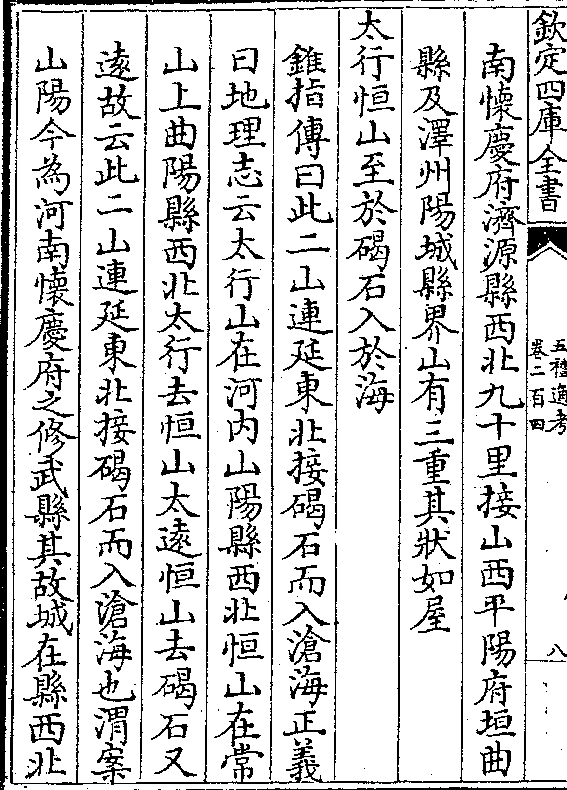 欽定四庫全書
五禮通考
卷二百四
八
南懷慶府濟源縣西北九十里接山西平陽府垣曲
縣及澤州陽城縣界山有三重其狀如屋
太行恒山至於碣石入於海
錐指傳曰此二山連延東北接碣石而入滄海正義
曰地理志云太行山在河内山陽縣西北恒山在常
山上曲陽縣西北太行去恒山太逺恒山去碣石又
逺故云此二山連延東北接碣石而入滄海也渭案
山陽今為河南懷慶府之修武縣其故城在縣西北